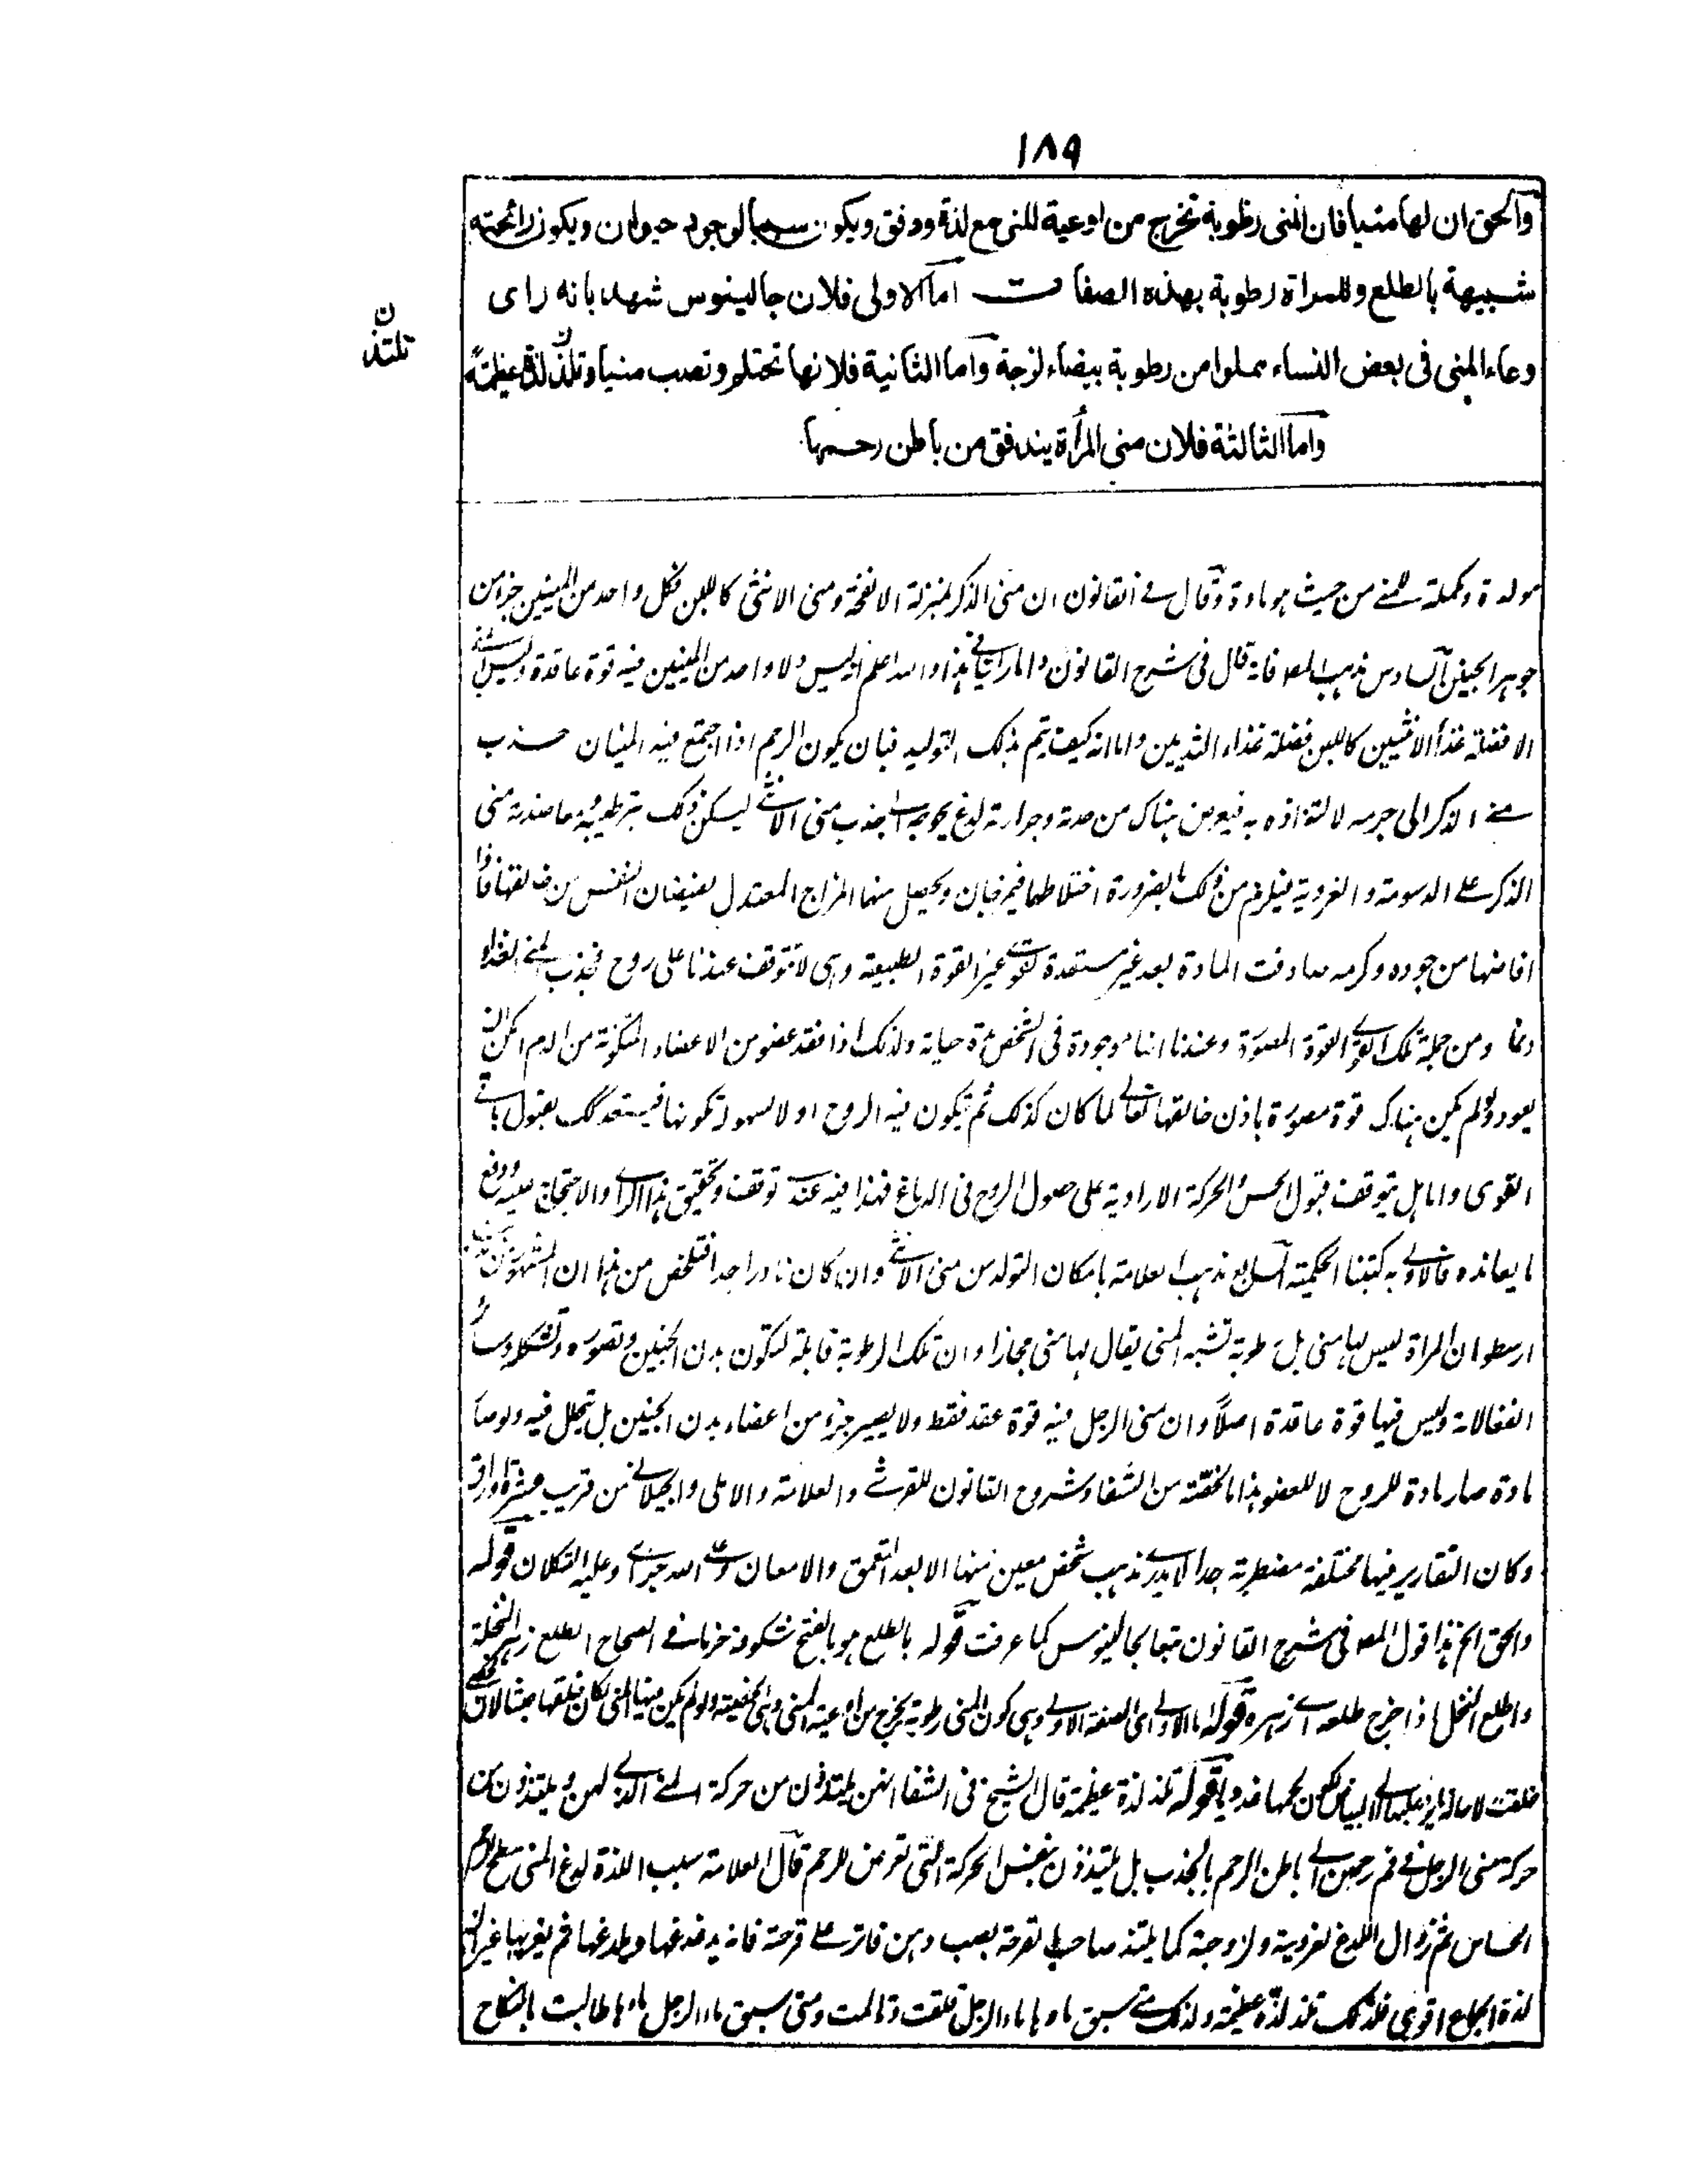 ١٨٩
والحق ان لها منيا فان المنى رطوبة تخرج من اوعية للمنى مع لذة ودفق ويكون سببا لوجود حيوان ويكون رائحته
شبيهة بالطلع وللمراة رطوبة بهذه الصفات اما الاولى فلان جالينوس شهد بانه راى
وعاء المنى فى بعض النساء مملوا من رطوبة بيضاء لزجة واما الثانية فلانها تحتلم وتصب منيا وتلذ لذة عظيمة
ن
تلتذ
واما الثالثة فلان منى المرأة يندفق من باطن رحمها
مولدة ومكملة للمنى من حيث هو مادة وقال فى القانون ان منى الذكر بمنزلة الانفحة ومنى الانثى كاللبن فكل واحد من المنيين جزء من
جوهر الجنين السادس مذهب المص فانه قال فى شرح القانون واما راينا فى هذا والله اعلم انه ليس ولا واحد من المنيين فيه قوة عاقدة وليس
الا فضلة غذاء الانثيين كاللبن فضلة غذاء الثديين واما انه كيف يتم بذلك التوليد فبان يكون الرحم اذا اجتمع فيه المنيان جذب
منى الذكر الى جرمه لالتذاذه به فيعرض هناك من حدته وحرارته لذع يحوجه الى جذب منى الانثى ليسكن ذلك بترطيبه منى
الذكر على الدسومة والغروية فيلزم من ذلك بالضرورة اختلاطهما فيمتزجان ويحصل منهما المزاج المعتدل لفيضان النفس من خالقها فاذا
افاضها من جوده وكرمه صادفت المادة بعد غير مستعدة لقوى غير القوة الطبيعية وهى لا تتوقف عندنا على روح فيجذب المنى الغذاء
ومن جملة تلك القوى القوة المصورة وعندنا انها موجودة فى الشخص مدة حياته ولذلك اذا فقد عضو من الاعضاء المتكونة من الدم امكن ان
يعود ولو لم يكن هناك قوة مصورة باذن خالقها تعالى لما كان كذلك ثم يتكون فيه الروح اولا لسهولة تكونها فيستعد لك بقبول باقى
القوى واما هل يتوقف قبول الحس والحركة الارادية على حصول الروح فى الدماغ فهذا فيه عندى توقف وتحقيق هذا الراى والاحتجاج عليه ودفع
ما يعانده فالاولى به كتبنا الحكمية السابع مذهب العلامة بامكان التولد من منى الانثى وان كان نادرا جدا فتلخص من هذا ان المشهور من
ارسطو ان المراة ليس لها منى بل رطوبة تشبه المنى يقال لها منى مجازا وان تلك الرطوبة قابلة لتكون بدن الجنين وتصوره وتشكله وسائر
انفعالاته وليس فيها قوة عاقدة اصلاً وان منى الرجل فيه قوة عقد فقط ولا يصير جزء من اعضاء بدن الجنين بل يتحلل فيه ولو صار
مادة صار مادة للروح لا للعضو هذا ما لخصته من الشفا وشروح القانون للقرشى والعلامة والاملى والجيلانى من قريب عشرة اوراق
وكان التقارير فيها مختلفة مضطربة جدا لا يدرى مذهب شخص معين منها الا بعد التعمق والامعان وعلى الله جزائى وعليه التكلان قوله
والحق الخ هذا قول المص فى شرح القانون متبعا لجالينوس كما عرفت قوله بالطلع هو بالفتح شكوفه خرما فى الصحاح الطلع زهر النخلة
واطلع النخل اذا خرج طلعه اى زهره قوله اما الاولى اى الصفة الاولى وهى كون المنى رطوبة يخرج من اوعية المنى وهى الخصية ولو لم يكن فيها المنى لكان خلقها عبثا
قوله تلذ لذة عظيمة قال الشيخ فى الشفا انهن يلتذذن من حركة المنى الذى لهن ويلتذذن من
حركة منى الرجل فى فم رحمهن الى باطن الرحم بالجذب بل يلتذذن بنفس الحركة التى تعرض للرحم قال العلامة سبب اللذة لذع المنى سطح الرحم
الحساس ثم زوال اللذع لغرويته ولزوجته كما يلتذ صاحب القرحة بصب دهن فاتر على قرحته فانه يدغدغها ويلذعها ثم يغريها غير ان
لذة الجماع اقوى فلذلك تلذ لذة عظيمة ولذلك متى سبق ماوها ماء الرجل قلقت وتالمت ومتى سبق ماء الرجل ماءها طالبت بالنكاح